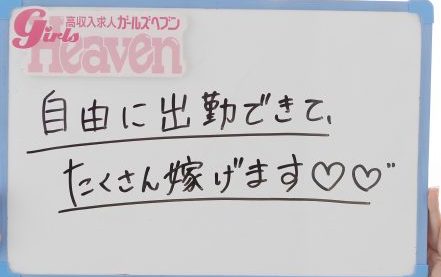 高収入求人ガールズヘブン
Girls
Heaven
自由に出勤できて、
たくさん嫁げます♡♡